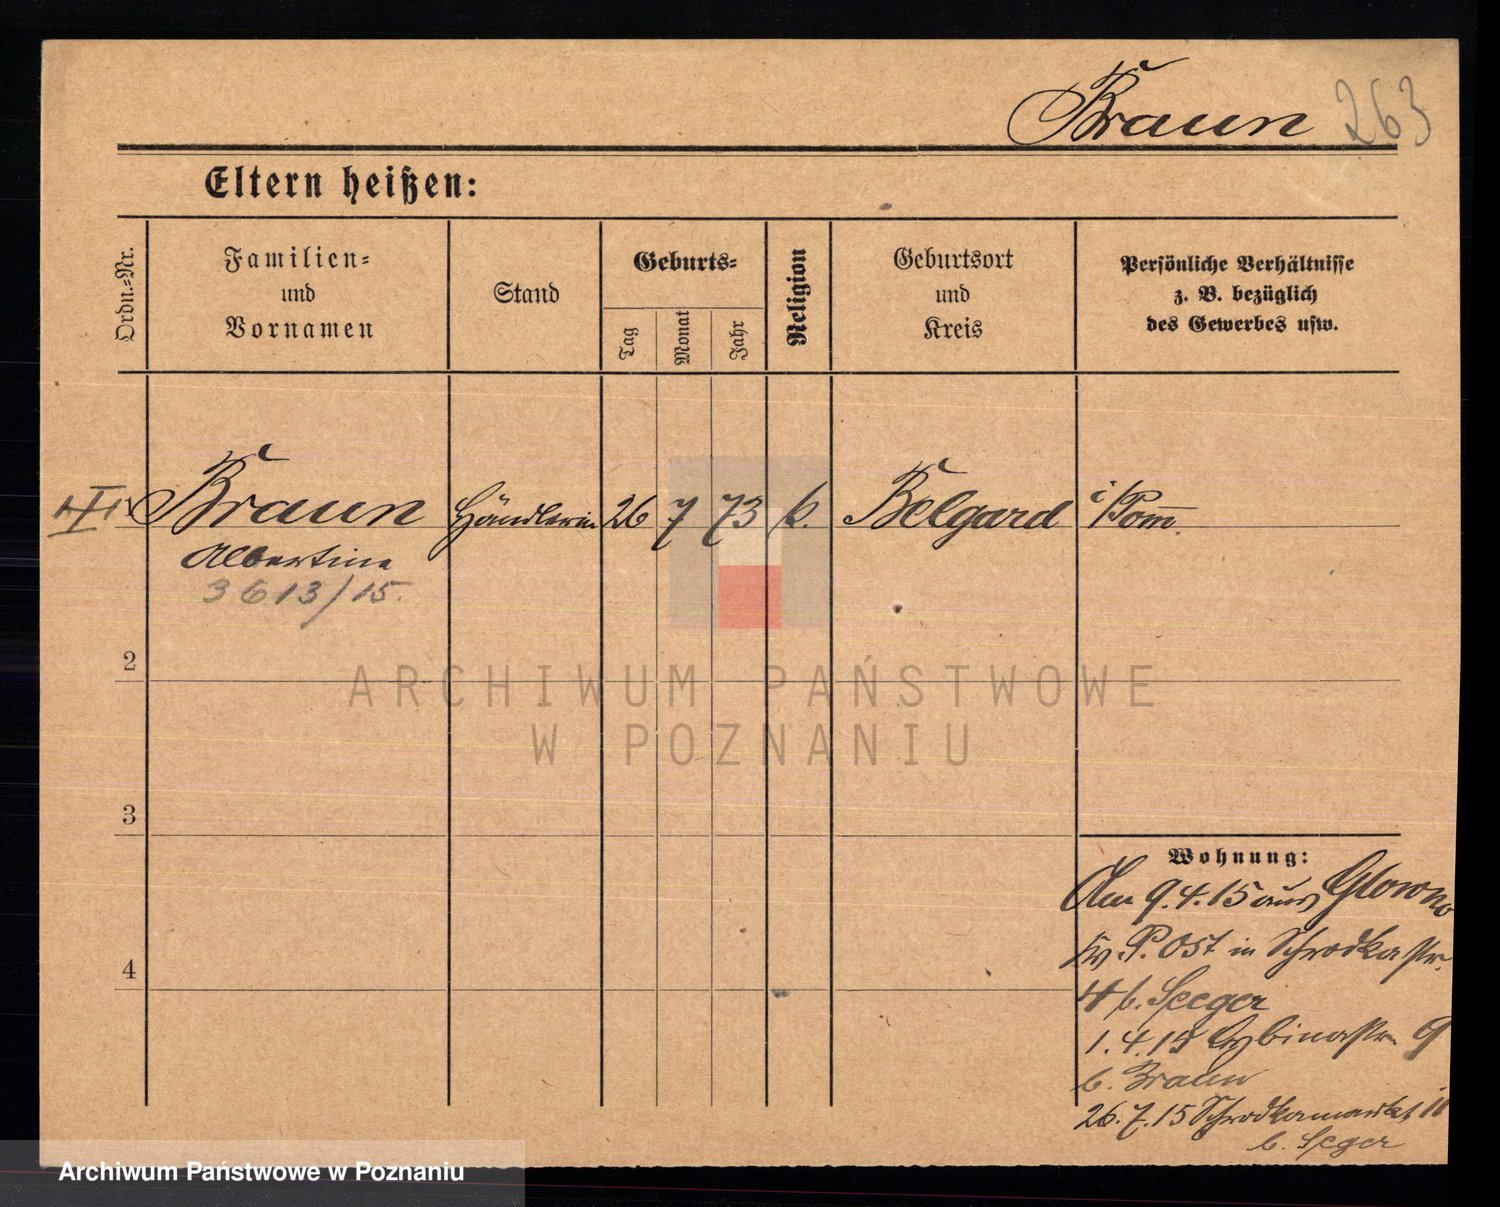 Braun 263
Eltern heißen:
Ordn.-Nr.
Familien-
und
Vornamen
Stand
Geburts-
Tag
Monat
Jahr
Religion
Geburtsort
und
Kreis
Persönliche Verhältnisse
z. B. bezüglich
des Gewerbes usw.
Braun Händlerin 26 7 73 k. Belgard i/Pom.
Albertine
3613/15.
2
3
4
ARCHIWUM PAŃSTWOWE
W POZNANIU
Wohnung:
Am 9.4.15 aus Glowno
P. Ost in Schrodkastr.
4 b. Seeger
1.4.15 Cybinastr. 9
b. Braun
26.7.15 Schrodkamarkt
b. Seger
Archiwum Państwowe w Poznaniu